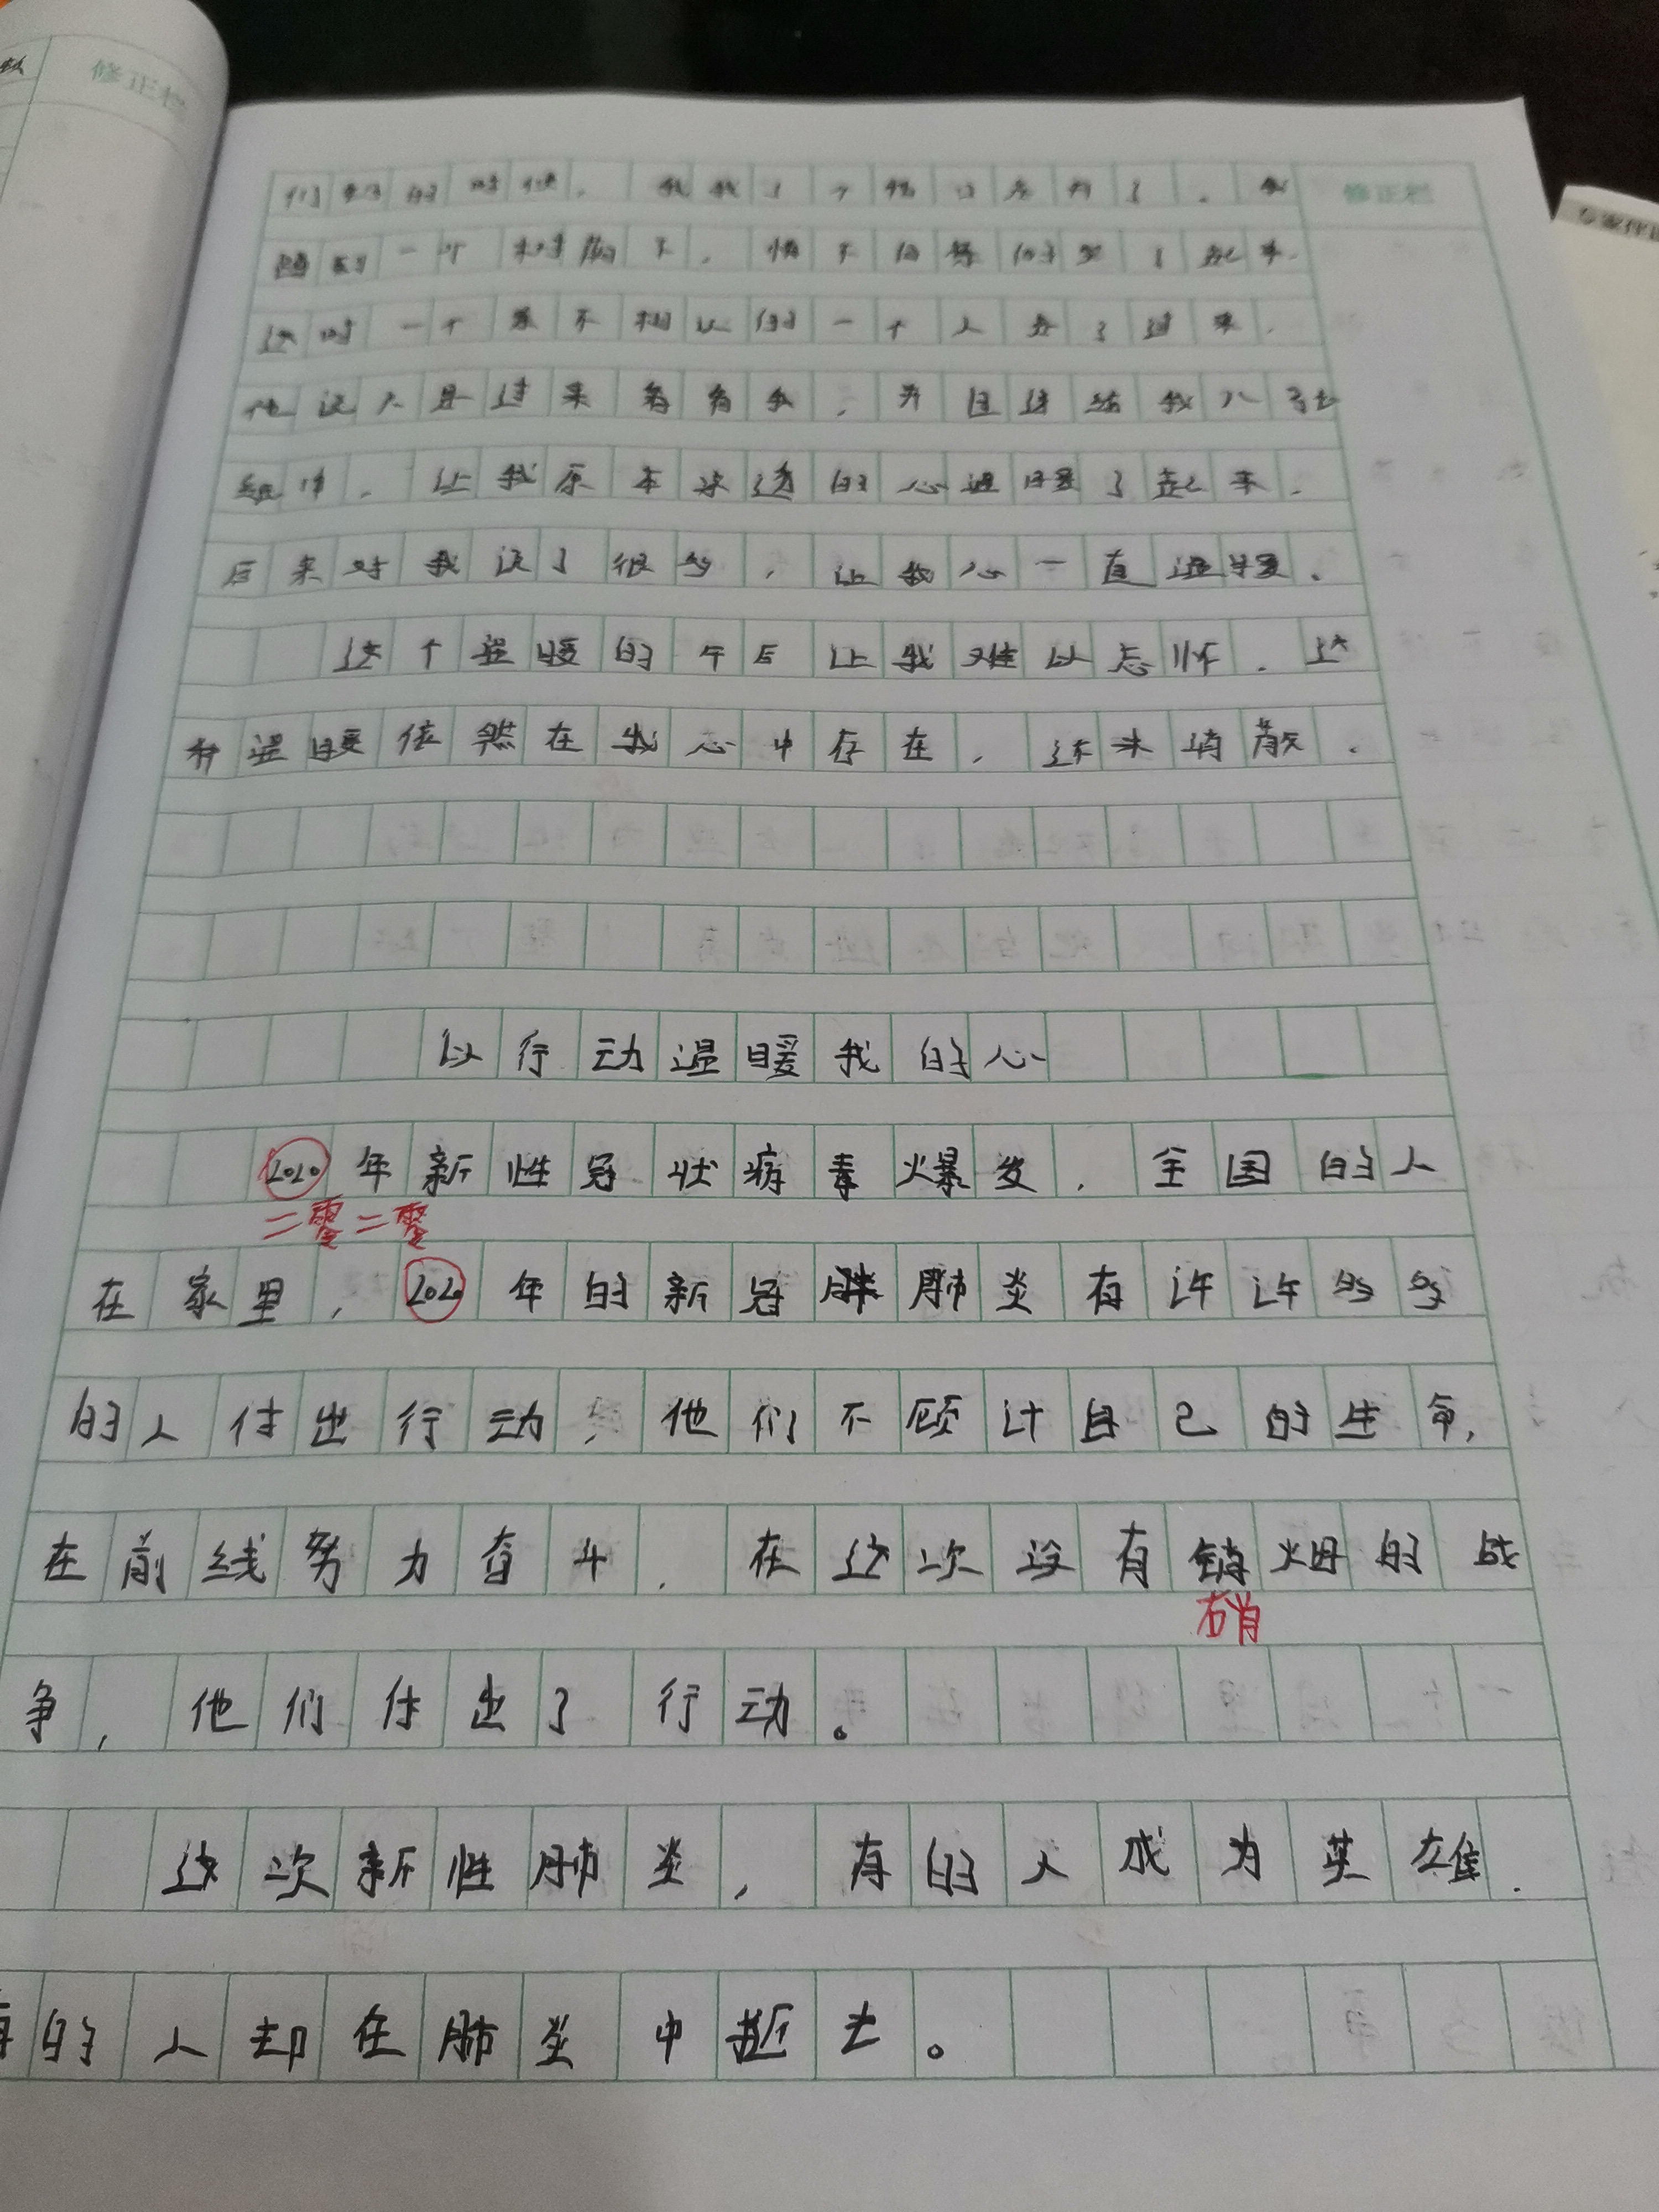 修正栏
修正栏
们 的时候,我找了个 口 了。我
一个 树荫下,情不自禁的哭了起来.
这时一个素不相认的一个人走了过来.
他 过来看看我,并且递给我
纸巾.让我原本冰透的心温暖了起来.
后来对我说了很多,让我心一直温暖.
这个温暖的午后让我难以忘怀.这
种温暖依然在我心中存在,还未消散.
以行动温暖我的心
2020年新性冠状病毒爆发.全国的人
二零二零
在家里,2020年的新冠肺炎有许许多多
的人付出行动,他们不顾计自己的生命,
在前线努力奋斗.在这次没有销烟的战
硝
争,他们付出了行动。
这次新性肺炎,有的人成为英雄.
有的人却在肺炎中逝去。